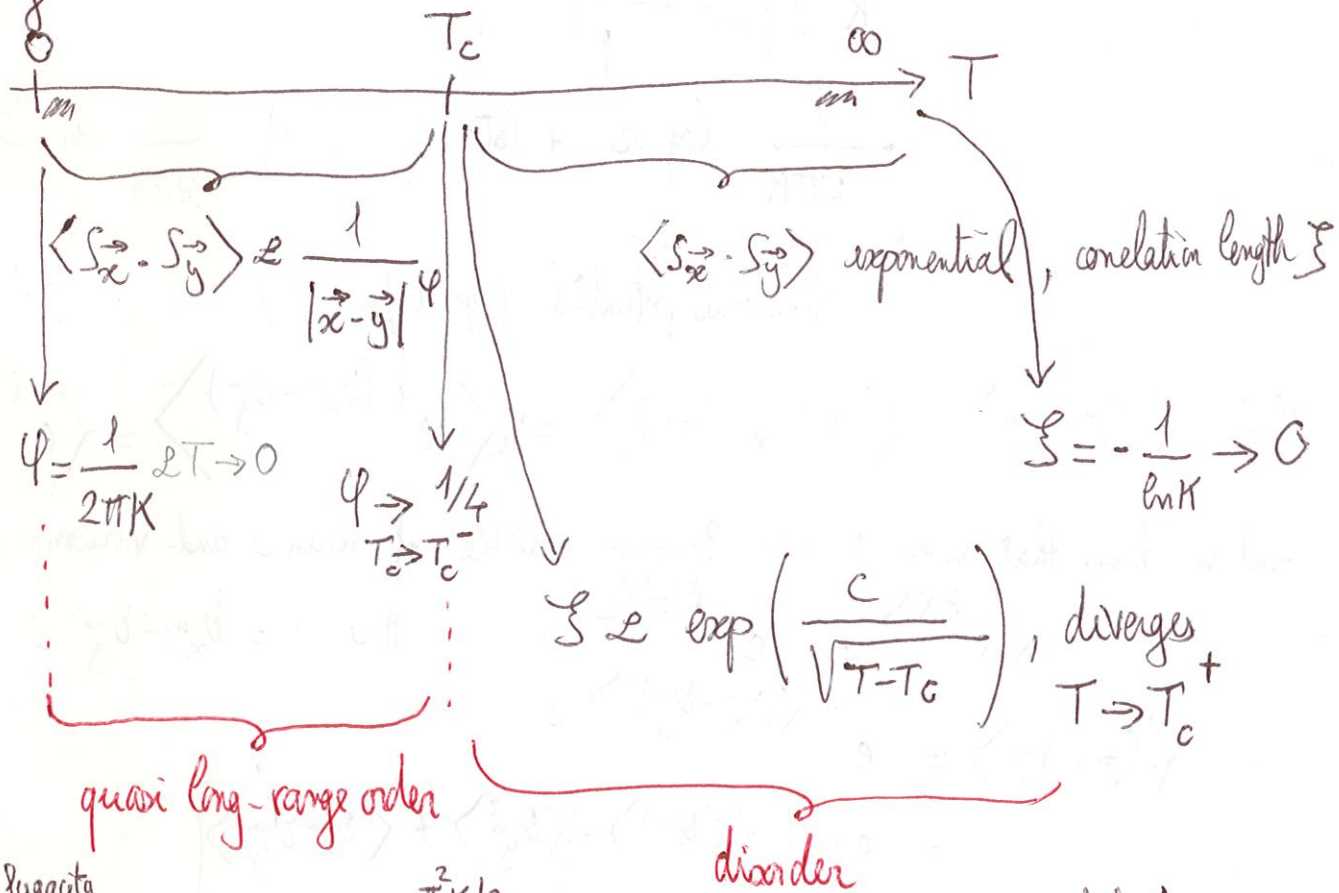 0 T_c ∞ T
⟨S_x⃗ . S_y⃗⟩ ∝ 1/|x⃗-y⃗|^φ ⟨S_x⃗ . S_y⃗⟩ exponential, correlation length ξ
φ = 1/2πK ∝ T → 0 φ → 1/4 ξ = - 1/ln K → 0
T_c → T_c^-
ξ ∝ exp(C/√T-T_c), diverges
T → T_c^+
quasi long-range order
disorder